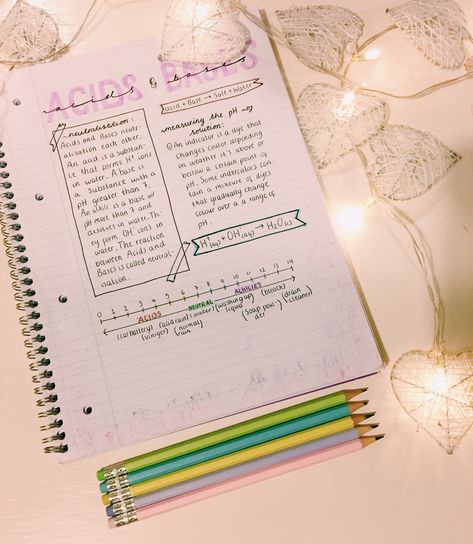 ACIDS & BASES
acids & bases
acid + Base → Salt + Water
neutralisation:
Acids and Bases neutr-
alisation each other.
An acid is a substan-
ce that forms H⁺ ions
in water. A base is
a substance with a
pH greater than 7.
An alkili is a base w/
pH more than 7 and
desolves in water. The-
y form OH⁻ ions in
water. The reaction
between Acids and
Bases is called neutral-
isation.
measuring the pH of
solution:
An indicator is a dye that
changes colour depending
on weather it's above or
below a certain point of
pH. Some indercators con-
tain a mixture of dyes
that gradually change
colour over a a range of
pH.
H⁺(aq) + OH(aq) → H₂O(l)
0 1 2 3 4 5 6 7 8 9 10 11 12 13 14
ACIDS NEUTRAL ALKILIES
(car battery) (acid rain) (water) (washing up liquid) (bleach) (drain cleaner)
(viniger) (normal rain) (Soap pow-der)